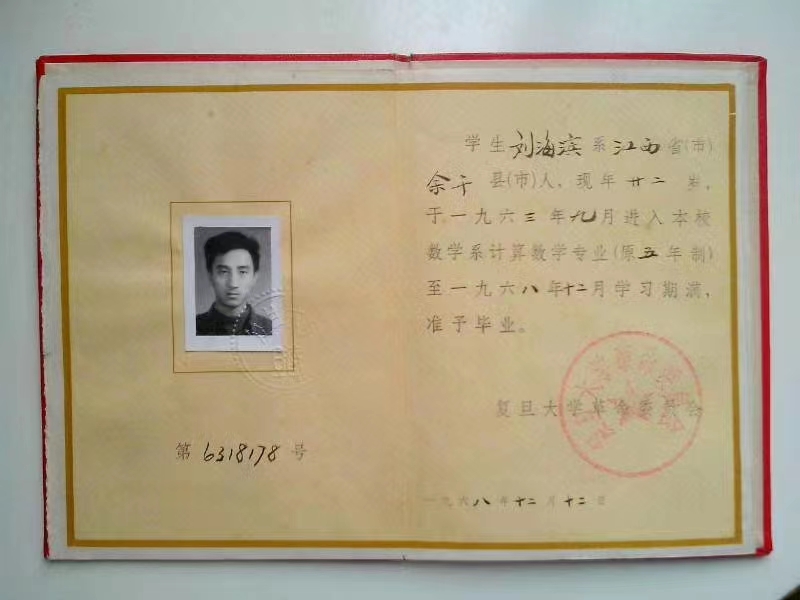 第6318178号
学生刘海滨系江西省(市)
余干县(市)人，现年廿二岁，
于一九六三年九月进入本校
数学系计算数学专业(原五年制)
至一九六八年十二月学习期满，
准予毕业。
复旦大学革命委员会
一九六八年十二月十二日